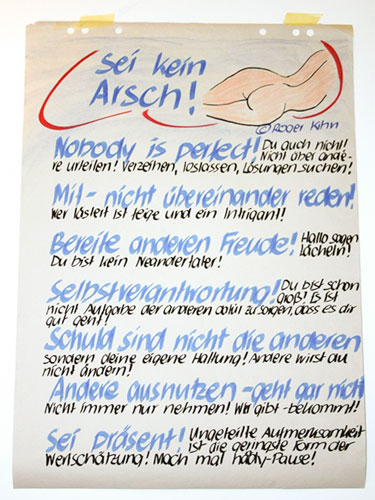 Sei kein
Arsch!
© Roger Kihn
Nobody is perfect! Du auch nicht!
Nicht über ande-
re urteilen! Verzeihen, loslassen, Lösungen suchen!
Mit- nicht übereinander reden!
Wer lästert ist feige und ein Intrigant!
Bereite anderen Freude! Hallo sagen
lächeln!
Du bist kein Neandertaler!
Selbstverantwortung! Du bist schon
groß! Es ist
nicht Aufgabe der anderen dafür zu sorgen, dass es dir
gut geht!
Schuld sind nicht die anderen
sondern deine eigene Haltung! Andere wirst du
nicht ändern!
Andere ausnutzen - geht gar nicht
Nicht immer nur nehmen! Wer gibt - bekommt!
Sei präsent! Ungeteilte Aufmerksamkeit
ist die geringste Form der
Wertschätzung! Mach mal handy-Pause!